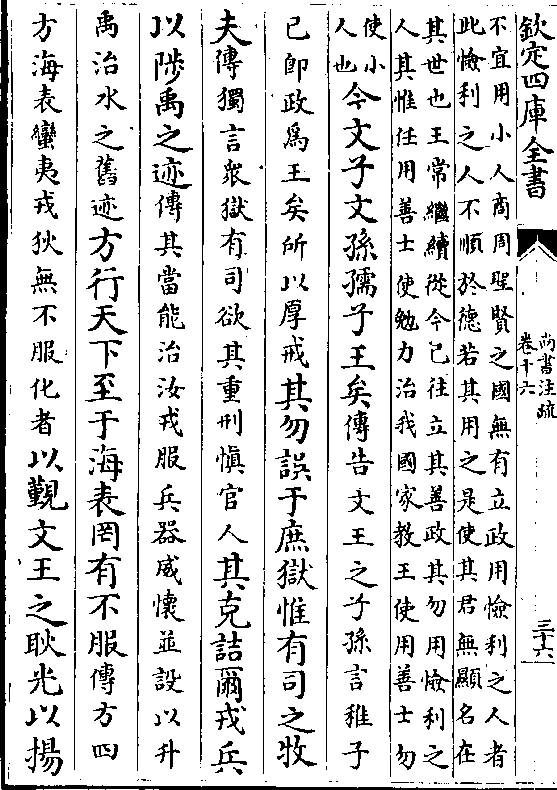 欽定四庫全書
尚書注疏
卷十六
三十六
不宜用小人商周聖賢之國無有立政用憸利之人者
此憸利之人不順於德若其用之是使其君無顯名在
其世也王常繼續從今已往立其善政其勿用憸利之
人其惟任用善士使勉力治我國家教王使用善士勿
使小
人也今文子文孫孺子王矣傳告文王之子孫言稚子
已即政為王矣所以厚戒其勿誤于庶獄惟有司之牧
夫傳獨言衆獄有司欲其重刑慎官人其克詰爾戎兵
以陟禹之迹傳其當能治汝戎服兵器威懷並設以升
禹治水之舊迹方行天下至于海表罔有不服傳方四
方海表蠻夷戎狄無不服化者以覲文王之耿光以揚